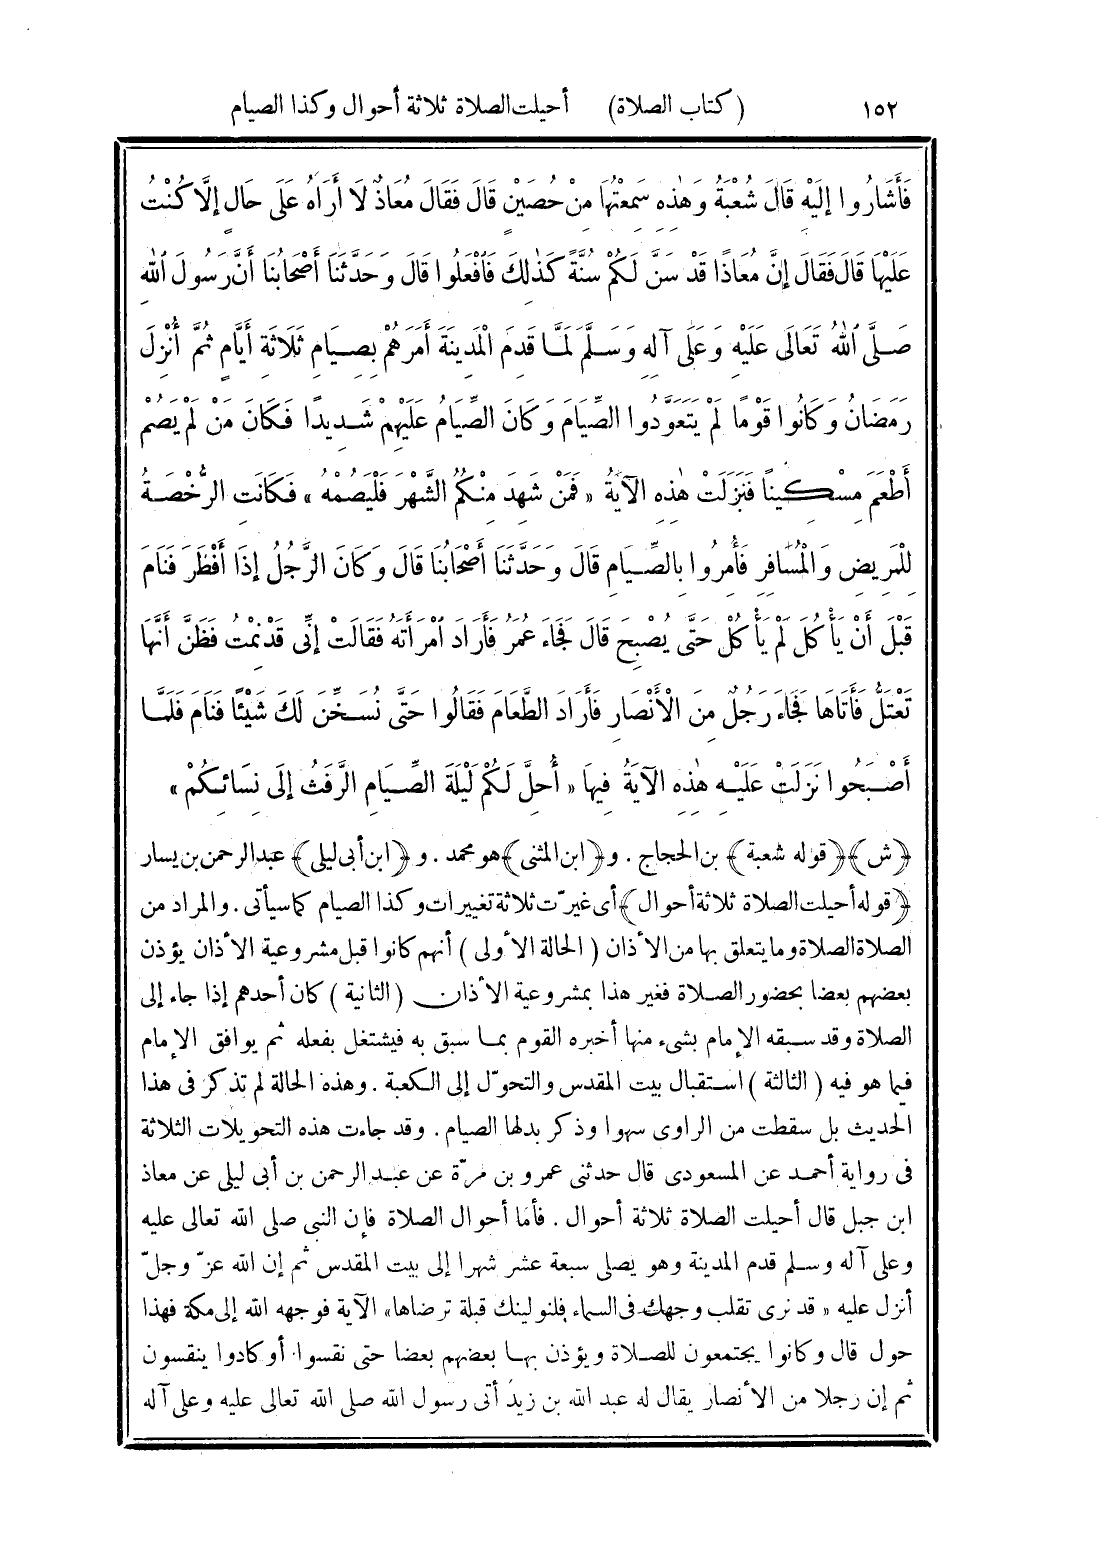 ١٥٢ (كتاب الصلاة) أحيلت الصلاة ثلاثة أحوال وكذا الصيام
فَأَشَارُوا إِلَيْهِ قَالَ شُعْبَةُ وَهٰذِهِ سَمِعْتُهَا مِنْ حُصَيْنٍ قَالَ فَقَالَ مُعَاذٌ لَا أَرَاهُ عَلَى حَالٍ إِلَّا كُنْتُ
عَلَيْهَا قَالَ فَقَالَ إِنَّ مُعَاذًا قَدْ سَنَّ لَكُمْ سُنَّةً كَذٰلِكَ فَٱفْعَلُوا قَالَ وَحَدَّثَنَا أَصْحَابُنَا أَنَّ رَسُولَ ٱللهِ
صَلَّى ٱللهُ تَعَالَى عَلَيْهِ وَعَلَى آلِهِ وَسَلَّمَ لَمَّا قَدِمَ الْمَدِينَةَ أَمَرَهُمْ بِصِيَامِ ثَلَاثَةِ أَيَّامٍ ثُمَّ أُنْزِلَ
رَمَضَانُ وَكَانُوا قَوْمًا لَمْ يَتَعَوَّدُوا الصِّيَامَ وَكَانَ الصِّيَامُ عَلَيْهِمْ شَدِيدًا فَكَانَ مَنْ لَمْ يَصُمْ
أَطْعَمَ مِسْكِينًا فَنَزَلَتْ هٰذِهِ الْآيَةُ « فَمَنْ شَهِدَ مِنْكُمُ الشَّهْرَ فَلْيَصُمْهُ » فَكَانَتِ الرُّخْصَةُ
لِلْمَرِيضِ وَالْمُسَافِرِ فَأُمِرُوا بِالصِّيَامِ قَالَ وَحَدَّثَنَا أَصْحَابُنَا قَالَ وَكَانَ الرَّجُلُ إِذَا أَفْطَرَ فَنَامَ
قَبْلَ أَنْ يَأْكُلَ لَمْ يَأْكُلْ حَتَّى يُصْبِحَ قَالَ فَجَاءَ عُمَرُ فَأَرَادَ ٱمْرَأَتَهُ فَقَالَتْ إِنِّي قَدْ نِمْتُ فَظَنَّ أَنَّهَا
تَعْتَلُّ فَأَتَاهَا فَجَاءَ رَجُلٌ مِنَ الْأَنْصَارِ فَأَرَادَ الطَّعَامَ فَقَالُوا حَتَّى نُسَخِّنَ لَكَ شَيْئًا فَنَامَ فَلَمَّا
أَصْبَحُوا نَزَلَتْ عَلَيْهِ هٰذِهِ الْآيَةُ فِيهَا « أُحِلَّ لَكُمْ لَيْلَةَ الصِّيَامِ الرَّفَثُ إِلَى نِسَائِكُمْ »
﴿ش﴾ ﴿قوله شعبة﴾ بن الحجاج . و﴿ابن المثنى﴾ هو محمد . و﴿ابن أبى ليلى﴾ عبد الرحمن بن يسار
﴿قوله أحيلت الصلاة ثلاثة أحوال﴾ أى غيرّت ثلاثة تغييرات وكذا الصيام كما سيأتى . والمراد من
الصلاة الصلاة وما يتعلق بها من الأذان (الحالة الأولى) أنهم كانوا قبل مشروعية الأذان يؤذن
بعضهم بعضا بحضور الصلاة فغير هذا بمشروعية الأذان (الثانية) كان أحدهم إذا جاء إلى
الصلاة وقد سبقه الإمام بشىء منها أخبره القوم بما سبق به فيشتغل بفعله ثم يوافق الإمام
فيما هو فيه (الثالثة) استقبال بيت المقدس والتحوّل إلى الكعبة . وهذه الحالة لم تذكر فى هذا
الحديث بل سقطت من الراوى سهوا وذكر بدلها الصيام . وقد جاءت هذه التحويلات الثلاثة
فى رواية أحمد عن المسعودى قال حدثنى عمرو بن مرّة عن عبد الرحمن بن أبى ليلى عن معاذ
ابن جبل قال أحيلت الصلاة ثلاثة أحوال . فأما أحوال الصلاة فإن النبى صلى الله تعالى عليه
وعلى آله وسلم قدم المدينة وهو يصلى سبعة عشر شهرا إلى بيت المقدس ثم إن الله عزّ وجلّ
أنزل عليه « قد نرى تقلب وجهك فى السماء فلنولينك قبلة ترضاها » الآية فوجهه الله إلى مكة فهذا
حول قال وكانوا يجتمعون للصلاة ويؤذن بها بعضهم بعضا حتى نقسوا أو كادوا ينقسون
ثم إن رجلا من الأنصار يقال له عبد الله بن زيد أتى رسول الله صلى الله تعالى عليه وعلى آله